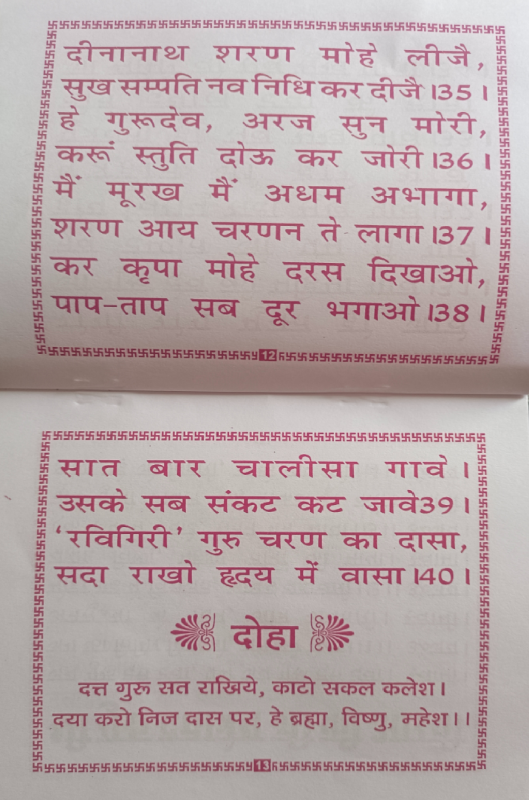 दीनानाथ शरण मोहे लीजै,
सुख सम्पति नव निधि कर दीजै।35।
हे गुरूदेव, अरज सुन मोरी,
करूं स्तुति दोऊ कर जोरी।36।
मैं मूरख मैं अधम अभागा,
शरण आय चरणन ते लागा।37।
कर कृपा मोहे दरस दिखाओ,
पाप-ताप सब दूर भगाओ।38।
12
सात बार चालीसा गावे।
उसके सब संकट कट जावे39।
‘रविगिरी’ गुरु चरण का दासा,
सदा राखो हृदय में वासा।40।
दोहा
दत्त गुरू सत राखिये, काटो सकल कलेश।
दया करो निज दास पर, हे ब्रह्मा, विष्णु, महेश।।
13